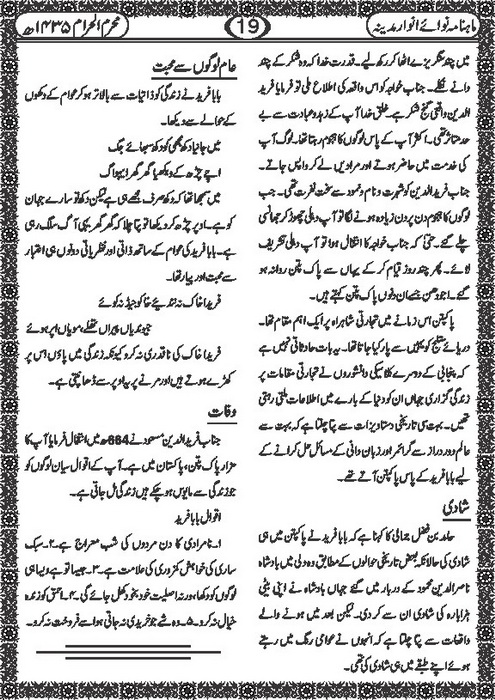 ماہنامہ نوائے انوار مدینہ
19
محرم الحرام ۱۴۳۵ھ
میں چند سنگریزے اٹھا کر رکھ لیے۔ قدرت خدا کہ وہ شکر کے چند
دانے نکلے۔ جناب خواجہ کو اس واقعہ کی اطلاع ملی تو فرمایا فرید
الدین واقعی گنج شکر ہے۔ خلق خدا آپ کے زہد و عبادت سے بے
حد متاثر تھی۔ اکثر آپ کے پاس لوگوں کا ہجوم رہتا تھا۔ لوگ آپ
کی خدمت میں حاضر ہوتے اور مرادیں لے کر واپس جاتے۔
جناب فرید الدین کو شہرت و نام و نمود سے سخت نفرت تھی۔ جب
لوگوں کا ہجوم دن پر دن زیادہ ہونے لگا تو آپ دہلی چھوڑ کر جھانسی
چلے گئے۔ حتیٰ کہ جناب خواجہ کا انتقال ہوا تو آپ دہلی تشریف
لائے۔ پھر چند روز قیام کر کے یہاں سے پاک پتن روانہ ہو
گئے۔ اجودھن جسے ان دنوں پاک پتن کہتے ہیں۔
پاکپتن اس زمانے میں تجارتی شاہراہ پر ایک اہم مقام تھا۔
دریائے ستلج کو یہیں سے پار کیا جاتا تھا۔ یہ بات حادثاتی نہیں ہے
کہ پنجابی کے دوسرے کلاسیکی دانشوروں نے تجارتی مقامات پر
زندگی گزاری جہاں ان کو دنیا کے بارے میں اطلاعات ملتی رہتی
تھیں۔ بہت سی تاریخی دستاویزات سے پتا چلتا ہے کہ بہت سے
عالم دور دراز سے گرائمر اور زبان دانی کے مسائل حل کرانے کے
لیے بابا فرید کے پاس پاکپتن آتے تھے۔
شادی
حامد بن فضل جمالی کا کہنا ہے کہ بابا فرید نے پاکپتن میں ہی
شادی کی حالانکہ بعض تاریخی حوالوں کے مطابق وہ دلی میں بادشاہ
ناصر الدین محمود کے دربار میں گئے جہاں بادشاہ نے اپنی بیٹی
ہزابارہ کی شادی ان سے کر دی۔ لیکن بعد میں ہونے والے
واقعات سے پتا چلتا ہے کہ انہوں نے عوامی رنگ میں رہتے
ہوئے اپنے طبقے میں ہی شادی کی تھی۔
عام لوگوں سے محبت
بابا فرید نے زندگی کو ذاتیات سے بالاتر ہو کر عوام کے دکھوں
کے حوالے سے دیکھا۔
میں جانیا دکھ مجھی کو دکھ سبھائے جگ
اچے چڑھ کے ویکھیا گھر گھر ایہو اگ
میں سمجھا تھا کہ دکھ صرف مجھے ہی ہے لیکن دکھ تو سارے جہان
کو ہے۔ اوپر چڑھ کر دیکھا تو پتا چلا کہ گھر گھر یہی آگ سلگ رہی
ہے۔ بابا فرید کی عوام کے ساتھ ذاتی اور نظریاتی دونوں ہی اعتبار
سے محبت اور پیار تھا۔
فریدا خاک نہ نندیئے خاکو جیڈ نہ کوئے
جیوندیاں پیراں تھلے، مویاں اپر ہوئے
فریدا خاک کی ناقدری نہ کرو کیونکہ زندگی میں پاؤں اس پر
کھڑے ہوتے ہیں اور مرنے پر یہ اوپر سے ڈھانپتی ہے۔
وفات
جناب فرید الدین مسعود نے 664ھ میں انتقال فرمایا آپ کا
مزار پاک پتن، پاکستان میں ہے۔ آپ کے اقوال سے ان لوگوں کو
جو زندگی سے مایوس ہو چکے ہیں زندگی مل جاتی ہے۔
اقوال بابا فرید
۱۔ نامرادی کا دن مردوں کی شب معراج ہے۔ ۲۔ سبک
ساری کی خواہش کمزوری کی علامت ہے۔ ۳۔ جیسا تو ہے ویسا ہی
لوگوں کو دکھا ورنہ اصلیت خود بخود کھل جائے گی۔ ۴۔ احمق کو زندہ
خیال نہ کرو۔ ۵۔ وہ شے جو خریدی نہ جاتی ہو اسے فروخت نہ کرو۔